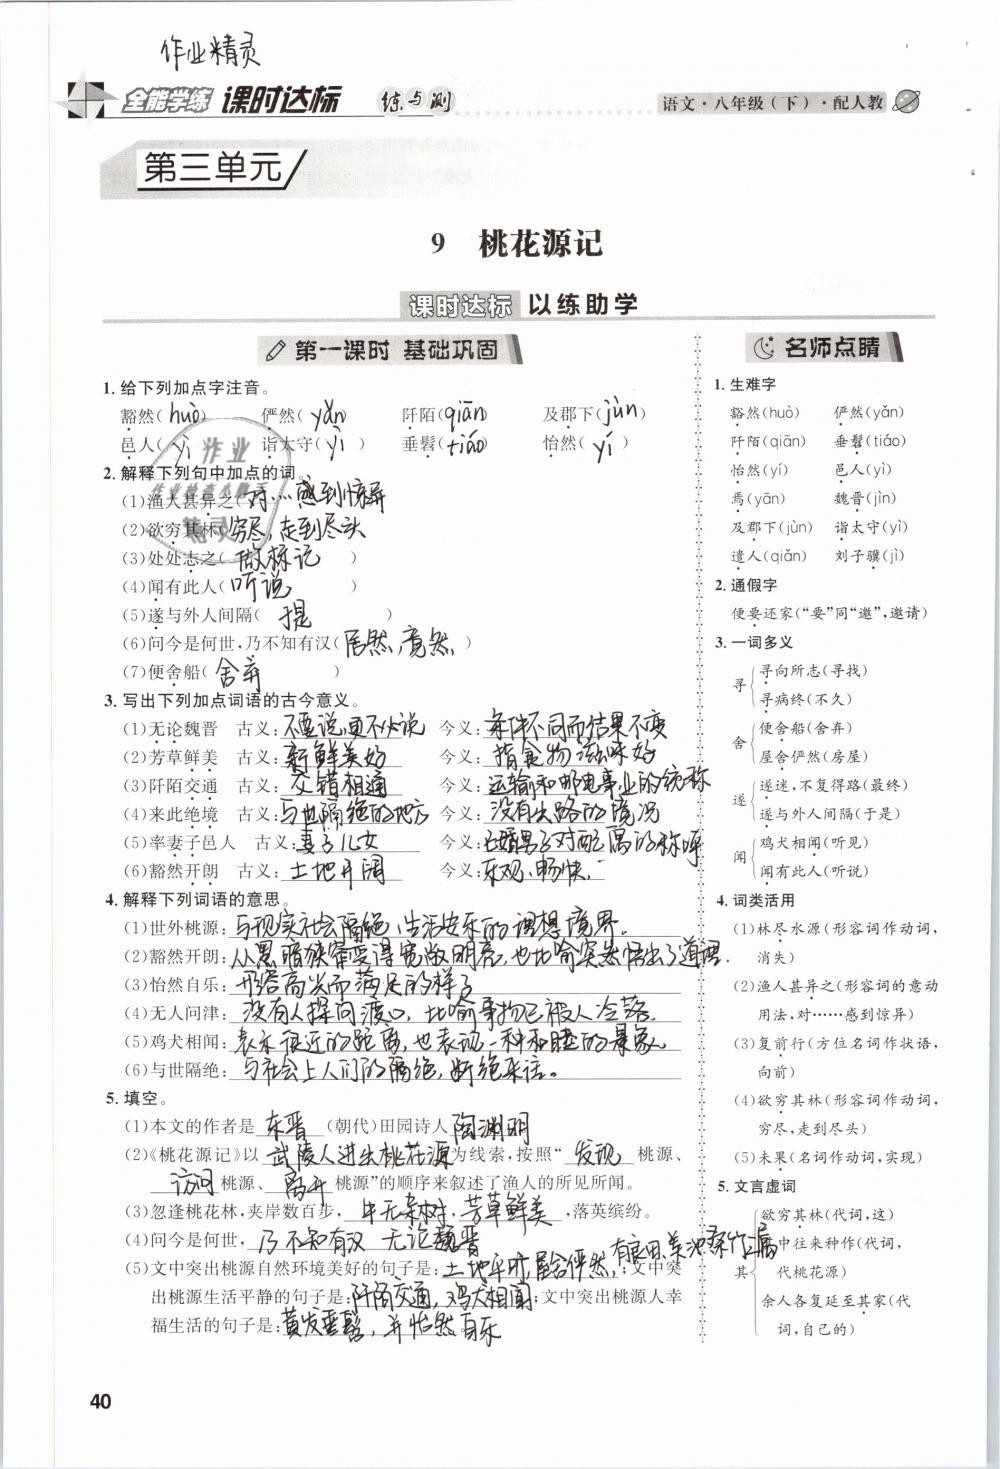 作业精灵
全能学练 课时达标 练与测
语文·八年级(下)·配人教
第三单元
9 桃花源记
课时达标 以练助学
第一课时 基础巩固
1. 给下列加点字注音。
豁然(huò) 俨然(yǎn) 阡陌(qiān) 及郡下(jùn)
邑人(yì) 诣太守(yì) 垂髫(tiáo) 怡然(yí)
2. 解释下列句中加点的词。
(1)渔人甚异之(对…感到惊异
(2)欲穷其林(穷尽,走到尽头
(3)处处志之(做标记)
(4)闻有此人(听说)
(5)遂与外人间隔( )
(6)问今是何世,乃不知有汉(居然,竟然)
(7)便舍船(舍弃)
3. 写出下列加点词语的古今意义。
(1)无论魏晋 古义:不要说,更不必说 今义:条件不同而结果不变
(2)芳草鲜美 古义:新鲜美好 今义:指食物滋味好
(3)阡陌交通 古义:交错相通 今义:运输和邮电事业的统称
(4)来此绝境 古义:与世隔绝的地方 今义:没有出路的境况
(5)率妻子邑人 古义:妻子儿女 今义:已婚男子对配偶的称呼
(6)豁然开朗 古义:土地开阔 今义:乐观,畅快.
4. 解释下列词语的意思。
(1)世外桃源:与现实社会隔绝,生活安乐的理想境界.
(2)豁然开朗:从黑暗狭窄变得宽敞明亮,也比喻突然悟出了道理.
(3)怡然自乐:形容高兴而满足的样子
(4)无人问津:没有人探问渡口,比喻事物已被人冷落.
(5)鸡犬相闻:表示很近的距离,也表现一种和睦的景象.
(6)与世隔绝:与社会上人们的隔绝,断绝来往。
5. 填空。
(1)本文的作者是 东晋 (朝代)田园诗人 陶渊明
(2)《桃花源记》以 武陵人进出桃花源 为线索,按照“ 发现 桃源、
访问 桃源、 离开 桃源”的顺序来叙述了渔人的所见所闻。
(3)忽逢桃花林,夹岸数百步, 中无杂树,芳草鲜美 ,落英缤纷。
(4)问今是何世, 乃不知有汉 无论魏晋
(5)文中突出桃源自然环境美好的句子是:土地平旷,屋舍俨然,有良田、美池桑竹之属;文中突
出桃源生活平静的句子是:阡陌交通,鸡犬相闻;文中突出桃源人幸
福生活的句子是:黄发垂髫,并怡然自乐
名师点睛
1. 生难字
豁然(huò) 俨然(yǎn)
阡陌(qiān) 垂髫(tiáo)
怡然(yí) 邑人(yì)
焉(yān) 魏晋(jìn)
及郡下(jùn) 诣太守(yì)
遣人(qiǎn) 刘子骥(jì)
2. 通假字
便要还家(“要”同“邀”,邀请)
3. 一词多义
寻
寻向所志(寻找)
寻病终(不久)
舍
便舍船(舍弃)
屋舍俨然(房屋)
遂
遂迷,不复得路(最终)
遂与外人间隔(于是)
闻
鸡犬相闻(听见)
闻有此人(听说)
4. 词类活用
(1)林尽水源(形容词作动词,
消失)
(2)渔人甚异之(形容词的意动
用法,对……感到惊异)
(3)复前行(方位名词作状语,
向前)
(4)欲穷其林(形容词作动词,
穷尽,走到尽头)
(5)未果(名词作动词,实现)
5. 文言虚词
其
欲穷其林(代词,这)
其中往来种作(代词,
代桃花源)
余人各复延至其家(代
词,自己的)
40